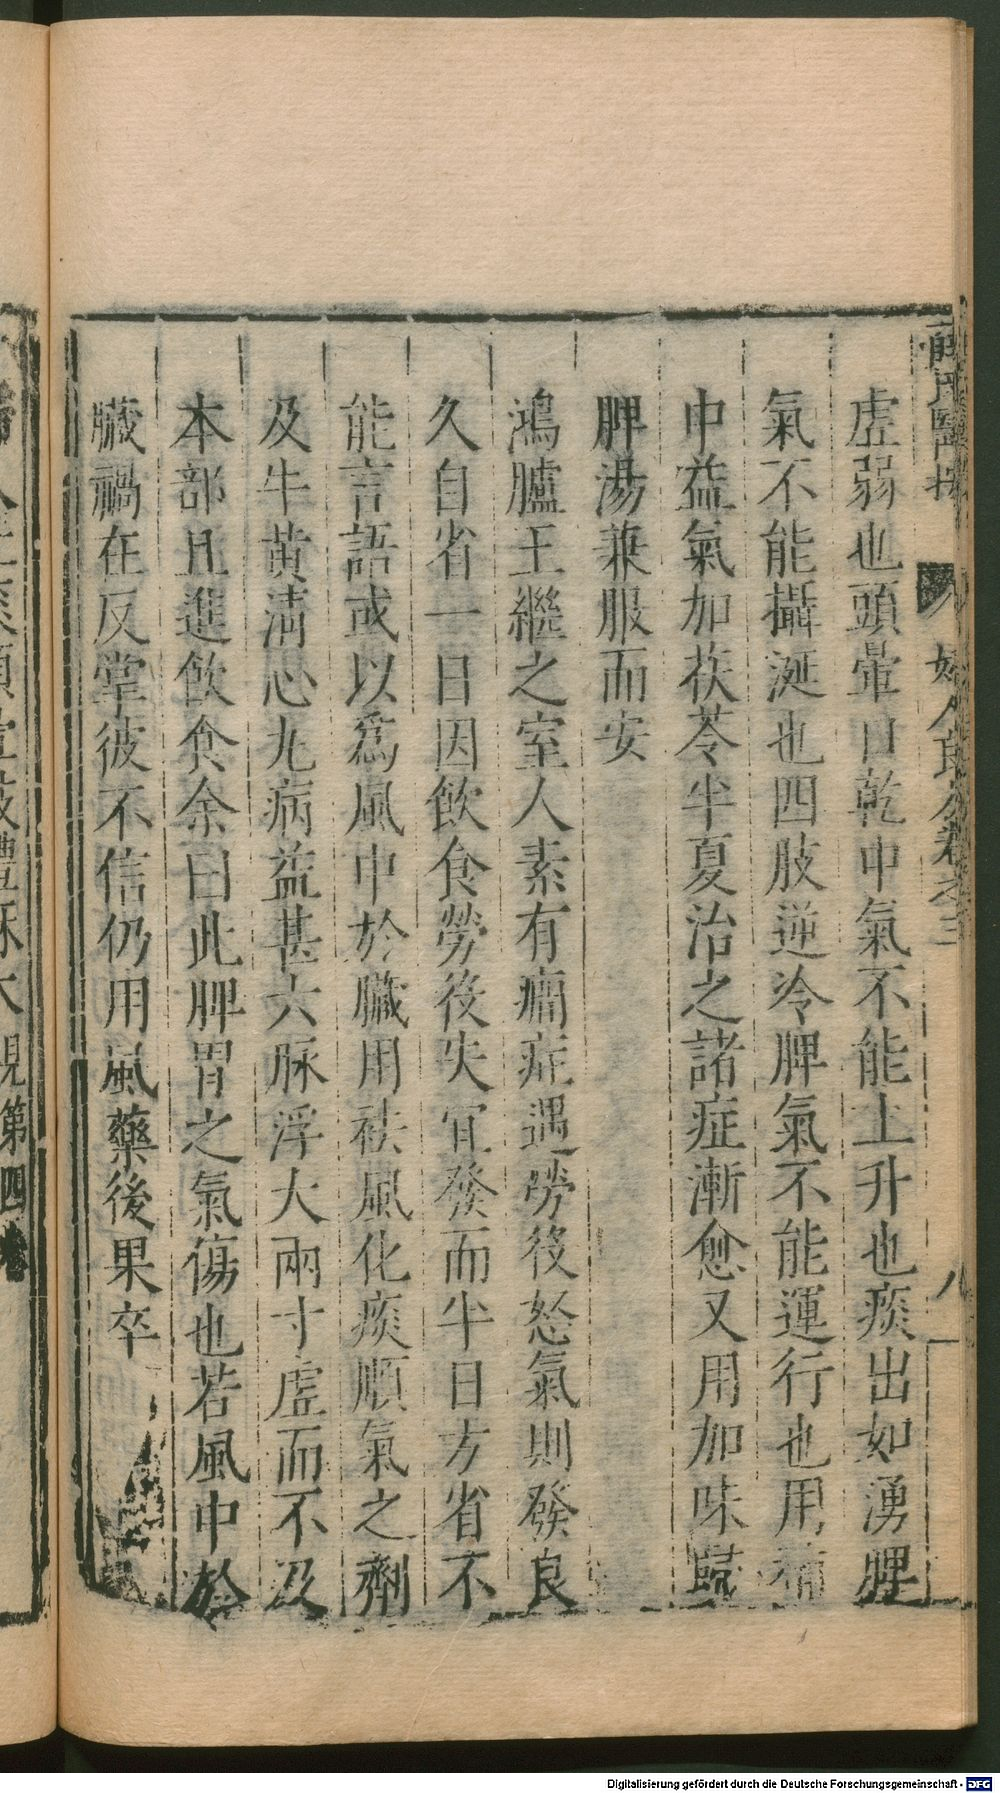 薛氏醫按 婦人良方卷之三 八
虛弱也頭暈口乾中氣不能上升也痰出如湧脾
氣不能攝涎也四肢逆冷脾氣不能運行也用補
中益氣加茯苓半夏治之諸症漸愈又用加味歸
脾湯兼服而安
鴻臚王繼之室人素有癇症遇勞役怒氣則發良
久自省一日因飲食勞役失宜發而半日方省不
能言語或以為風中於臟用祛風化痰順氣之劑
及牛黃清心丸病益甚六脉浮大兩寸虛而不及
本部且進飲食余曰此脾胃之氣傷也若風中於
臟禍在反掌彼不信仍用風藥後果卒
第四
Digitalisierung gefördert durch die Deutsche Forschungsgemeinschaft - DFG